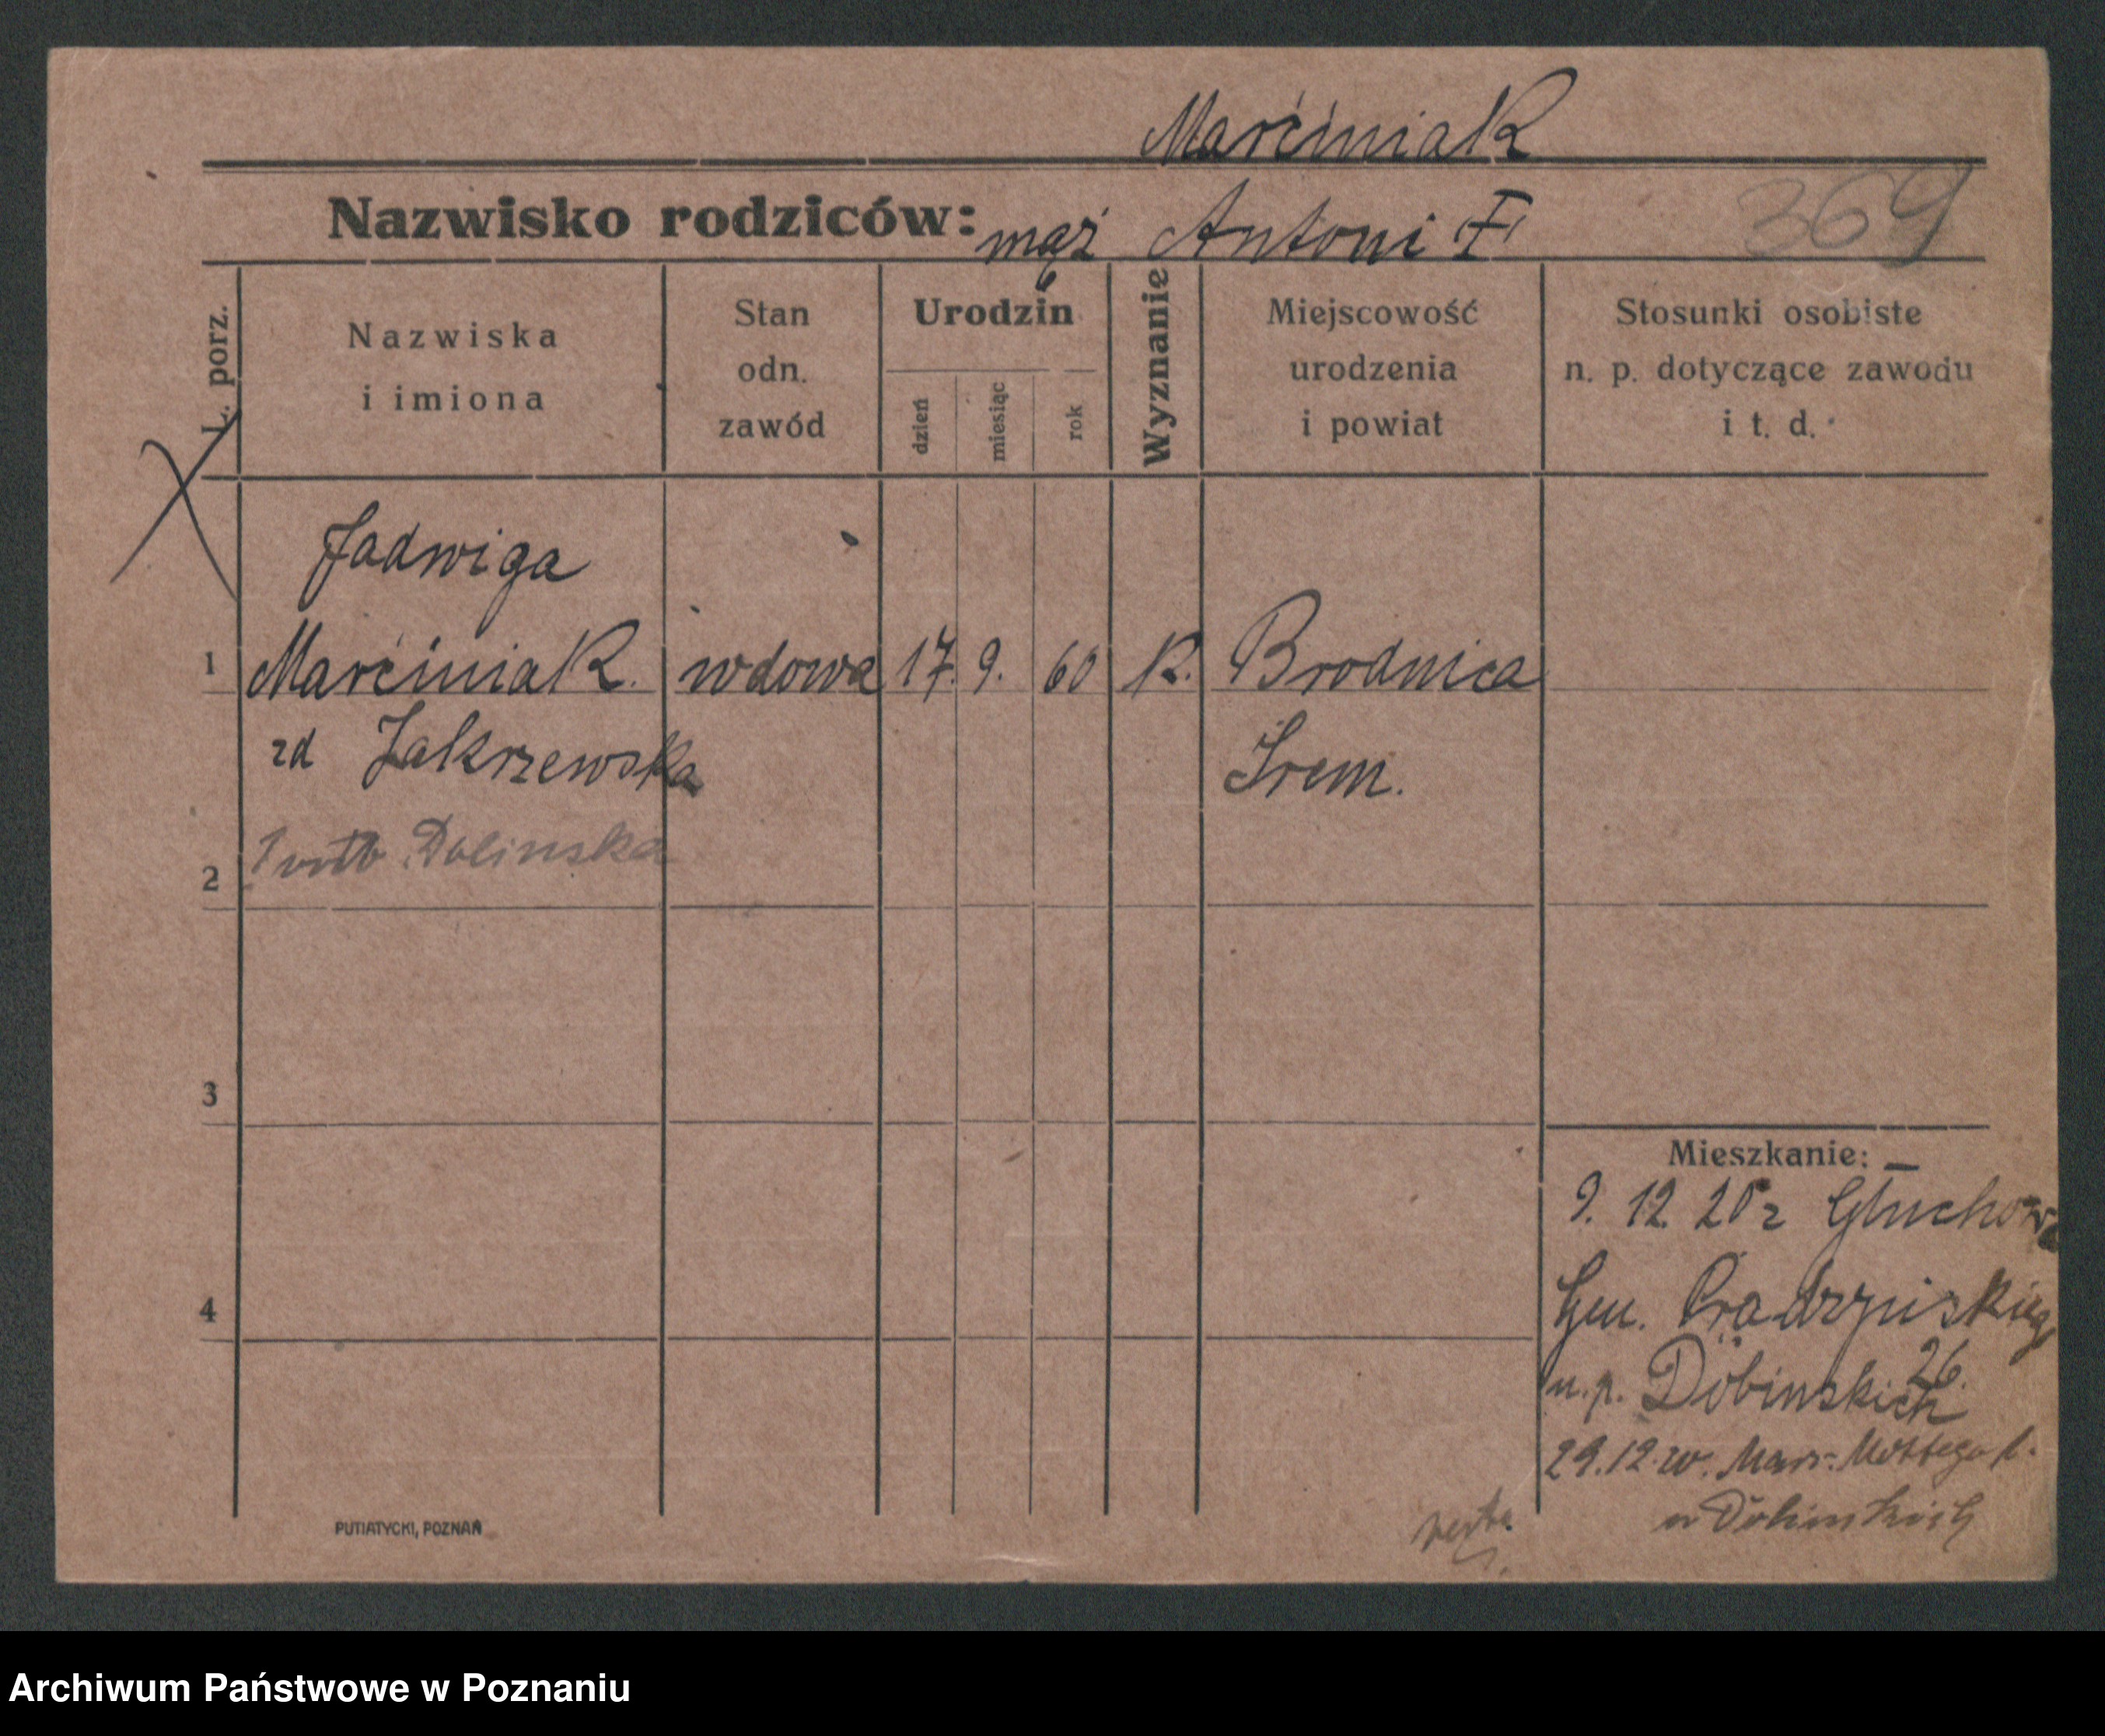 Marciniak
Nazwisko rodziców: mąż Antoni I
369
L. porz.
Nazwiska
i imiona
Stan
odn.
zawód
Urodzin
dzień
miesiąc
rok
Wyznanie
Miejscowość
urodzenia
i powiat
Stosunki osobiste
n. p. dotyczące zawodu
i t. d.
Jadwiga
1 Marciniak. wdowa 17. 9. 60 K. Brodnica
zd Zakrzewska Śrem.
2 Dolinska
3
Mieszkanie:
9. 12. 20 r Głuchowo
4
Gen. Prądzyńskiego
26.
u. p. Döbinskich
29.12. Mottego
u
PUTIATYCKI, POZNAŃ
Archiwum Państwowe w Poznaniu